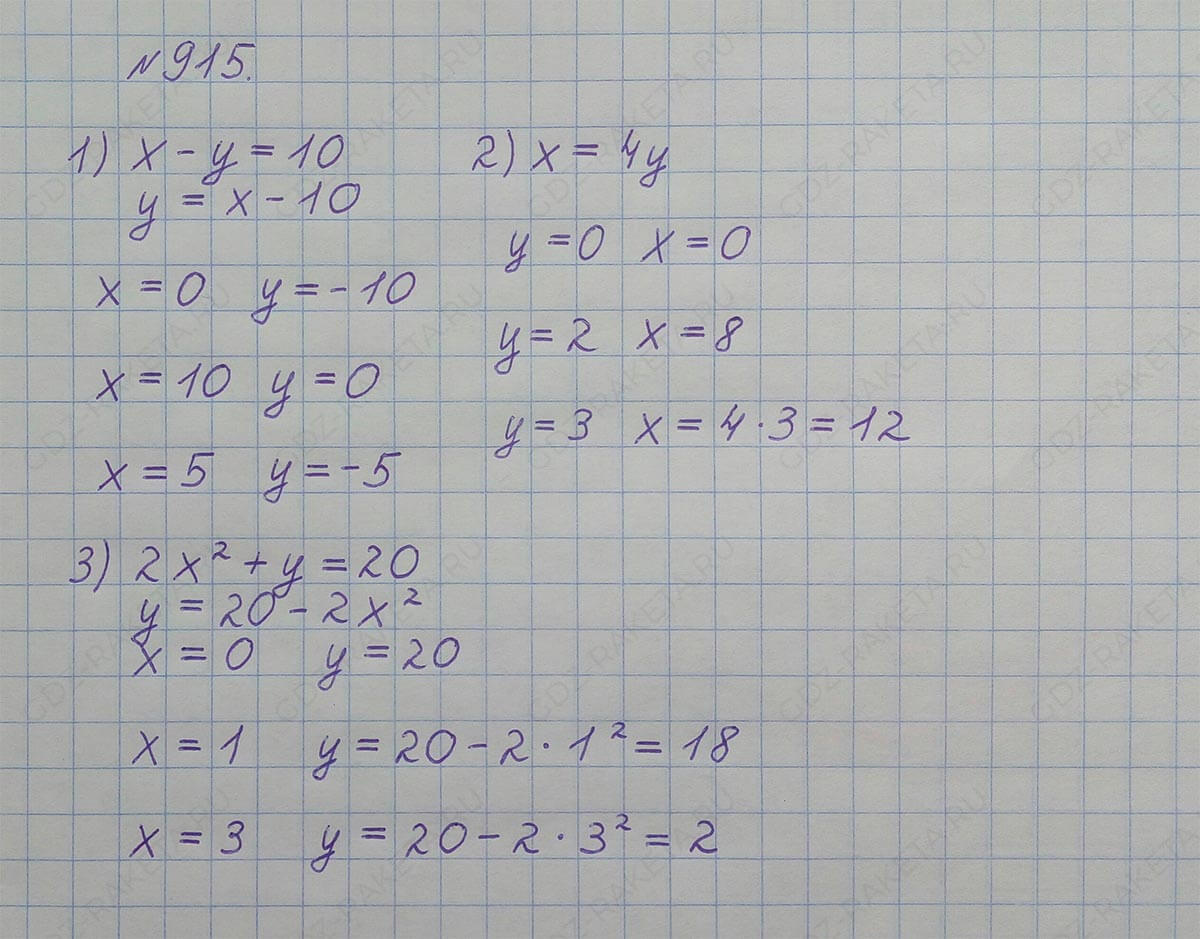 №915.
1) x - y = 10
y = x - 10
x = 0 y = -10
x = 10 y = 0
x = 5 y = -5
2) x = 4y
y = 0 x = 0
y = 2 x = 8
y = 3 x = 4·3 = 12
3) 2x² + y = 20
y = 20 - 2x²
x = 0 y = 20
x = 1 y = 20 - 2·1² = 18
x = 3 y = 20 - 2·3² = 2
GDZ-RAKETA.RU